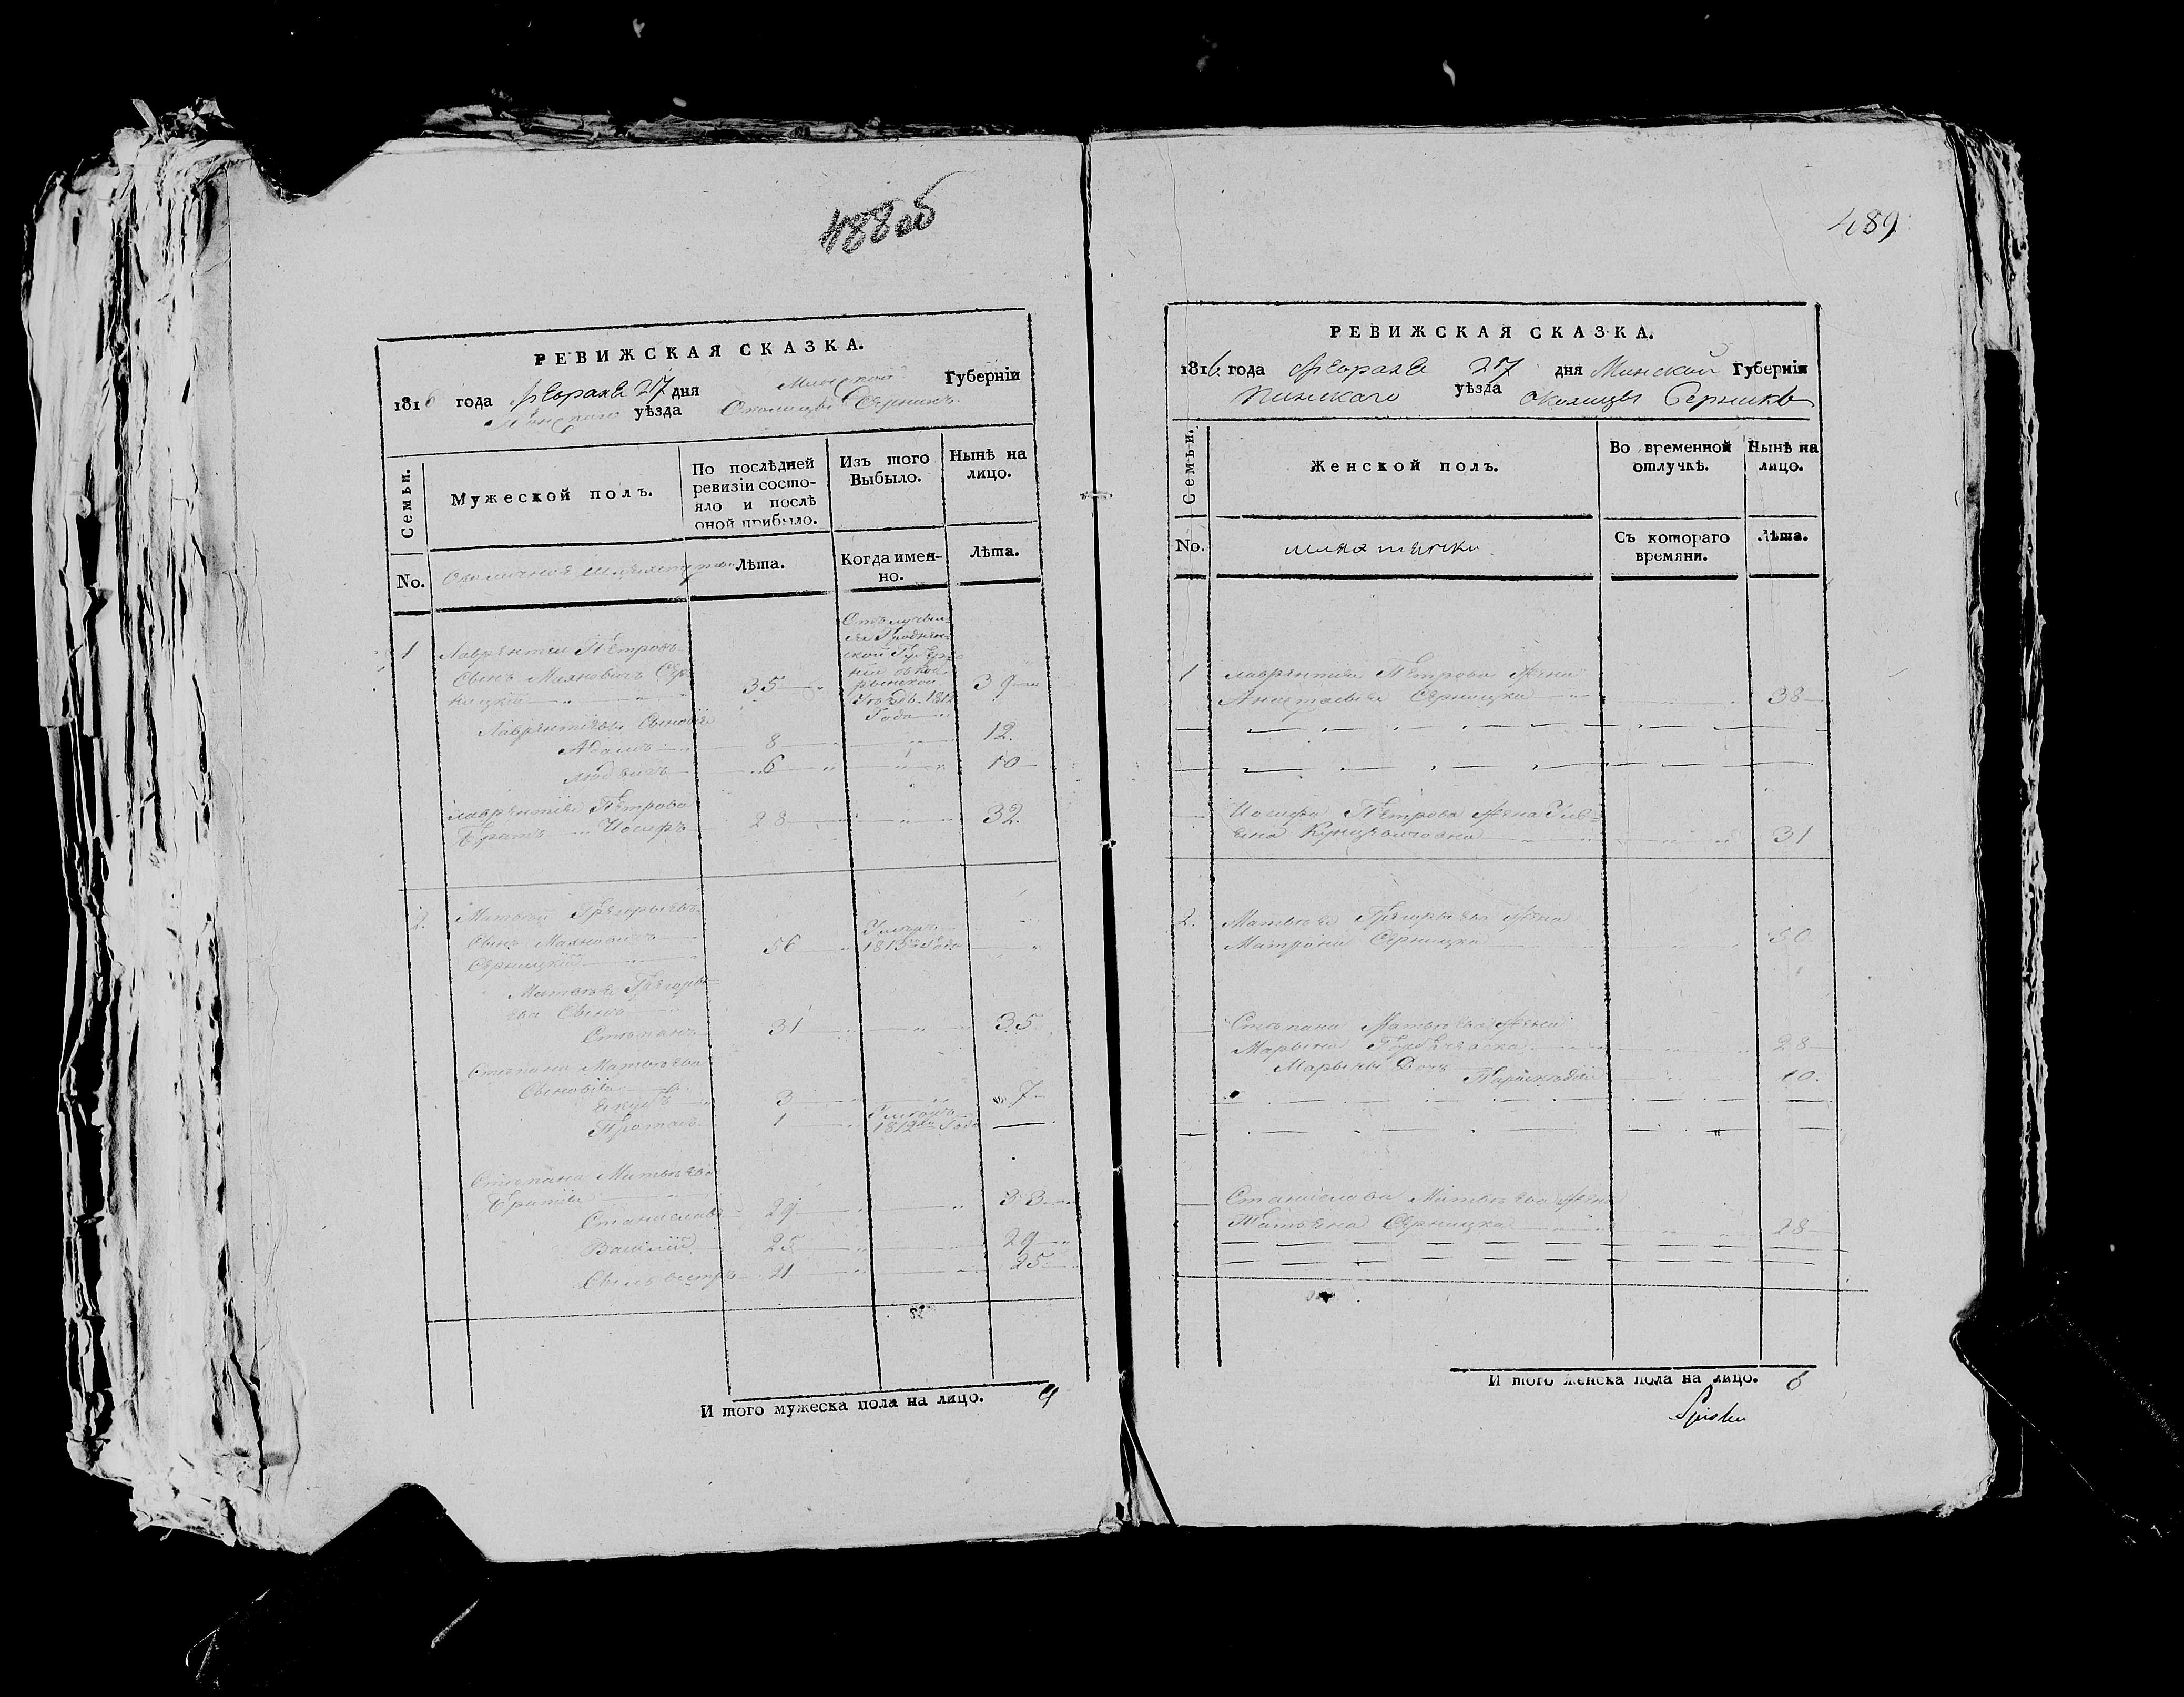 488 об
РЕВИЖСКАЯ СКАЗКА.
1816 года Февраля 27 дня Минской Губернїи
уѣзда Околицы Серникъ
Семьи.
Мужеской полъ.
По послѣдней ревизїи состояло и послѣ оной прибыло.
Изъ того Выбыло.
Нынѣ на лицо.
No.
Околичная
Лѣта.
Когда именно.
Лѣта.
1 Лаврентей Петровъ
Сынъ Маяновичъ Сер-
ницкїй 35 39
Отлучил-
ся Гроднен-
ской Губер-
нїи
Уездъ 1812
Года
Лаврентїя Сыновїя
Адамъ 8 12.
Людвикъ 6 10
Лаврентїя Петрова
Братъ Иосифъ 28 32.
2. Матвей Грегорьевъ
Сынъ Маяновичъ 56 Умеръ 1815 Года
Серницкїй
Матвея Грегорье-
ва Сынъ
Степанъ 31 35
Степана Матвеева
Сыновїя
Якубъ 3 7
Протасъ 1 1812 Года
Степана Матвеева
Братья
Станиславъ 29 33
Василїй 25 29
Сильвестръ 21 25
И того мужеска пола на лицо. 9
489
РЕВИЖСКАЯ СКАЗКА.
1816 года Февраля 27 дня Минской Губернїи
Пинскаго уѣзда Околицы Серникъ
Семьи.
Женской полъ.
Во временной отлучкѣ.
Нынѣ на лицо.
No.
шляхтянки
Съ котораго времяни.
Лѣта.
1 Лаврентїя Петрова Жена
Анастасья Серницка 38
Иосифа Петрова Жена Уль-
яна 31
2. Матвея Грегорьева Жена
Матрона Серницка 50
Степана Матвеева Жена
Марьяна 28
Марьяны Дочь
Параскевїя 10.
Станислава Матвеева Жена
Татьяна Серницка 28
И того женска пола на лицо. 6